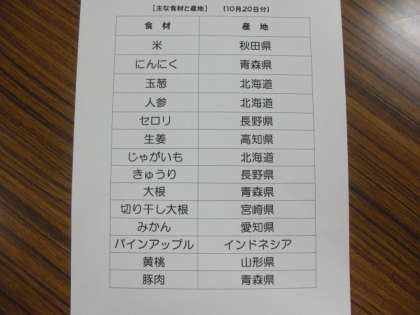 【主な食材と産地】 (10月20日分)
食材 産地
米 秋田県
にんにく 青森県
玉葱 北海道
人参 北海道
セロリ 長野県
生姜 高知県
じゃがいも 北海道
きゅうり 長野県
大根 青森県
切り干し大根 宮崎県
みかん 愛知県
パインアップル インドネシア
黄桃 山形県
豚肉 青森県